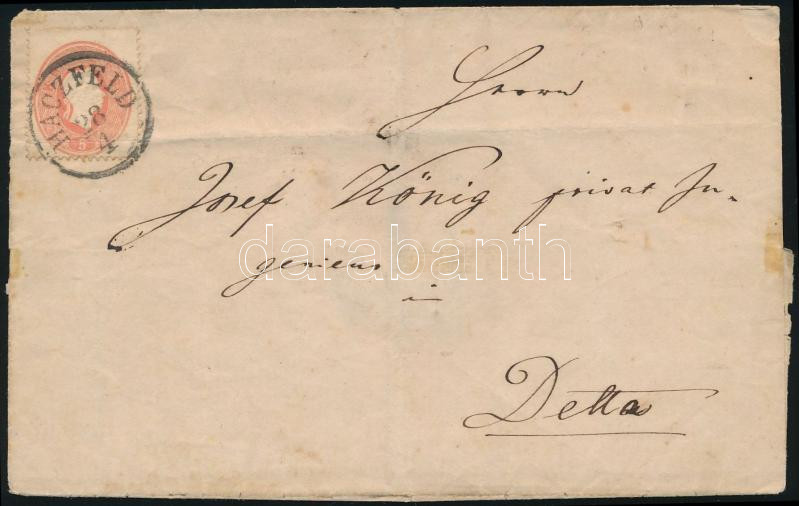 HACZFELD
28
4
5
Herrn
Josef König privat In-
genieur
in
Detta
darabanth